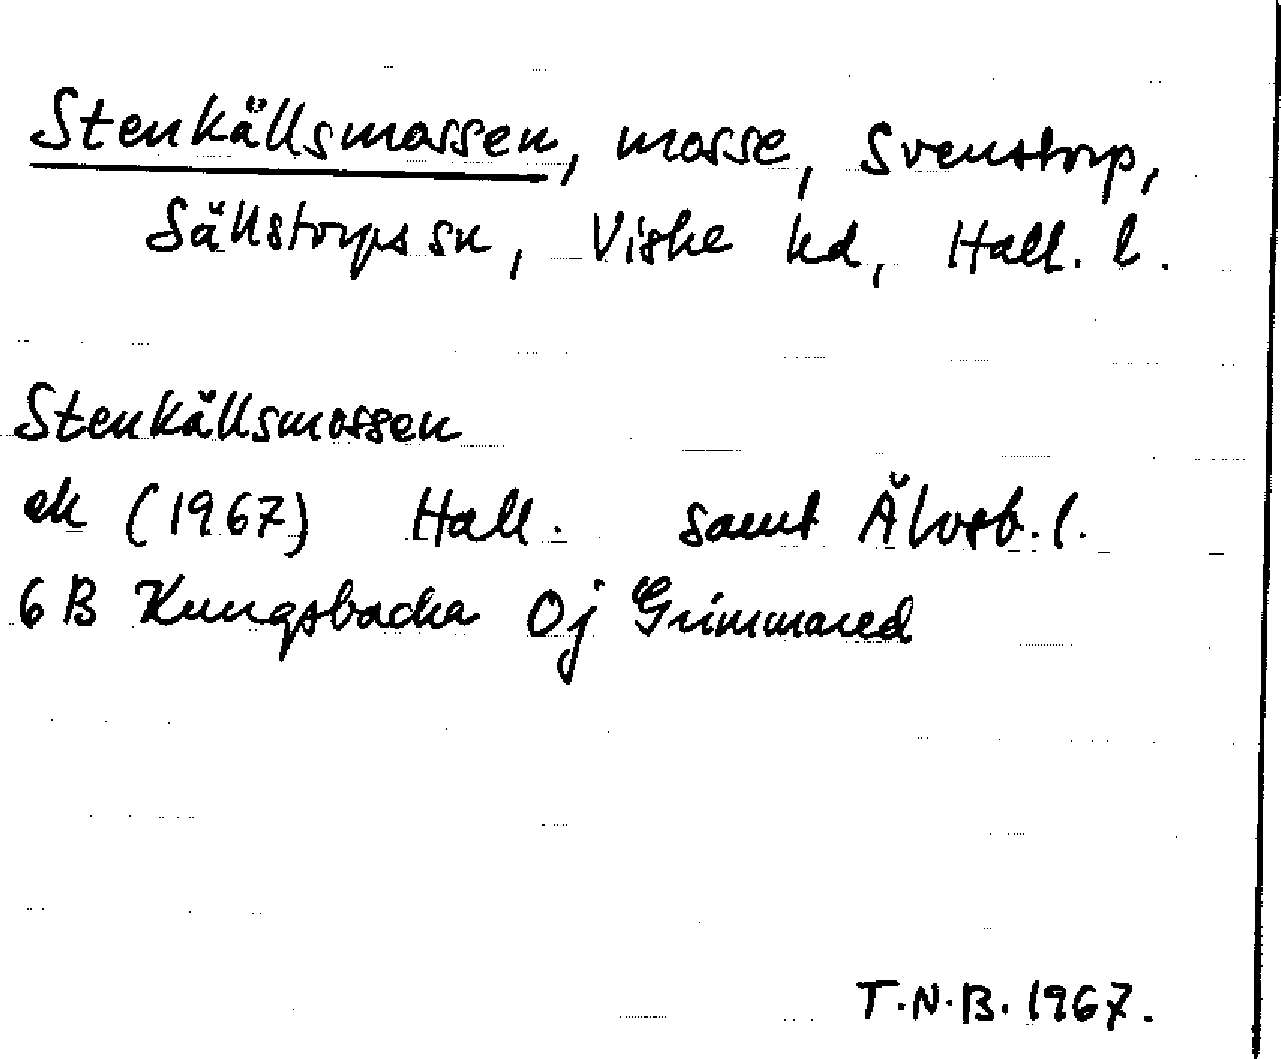 Stenkällsmossen, mosse, Svenstorp,
Sällstorps sn, Viske hd, Hall. l.
Stenkällsmossen
ek (1967) Hall. samt Älvsb. l.
6 B Kungsbacka 0j Grimmared
T.N.B. 1967.